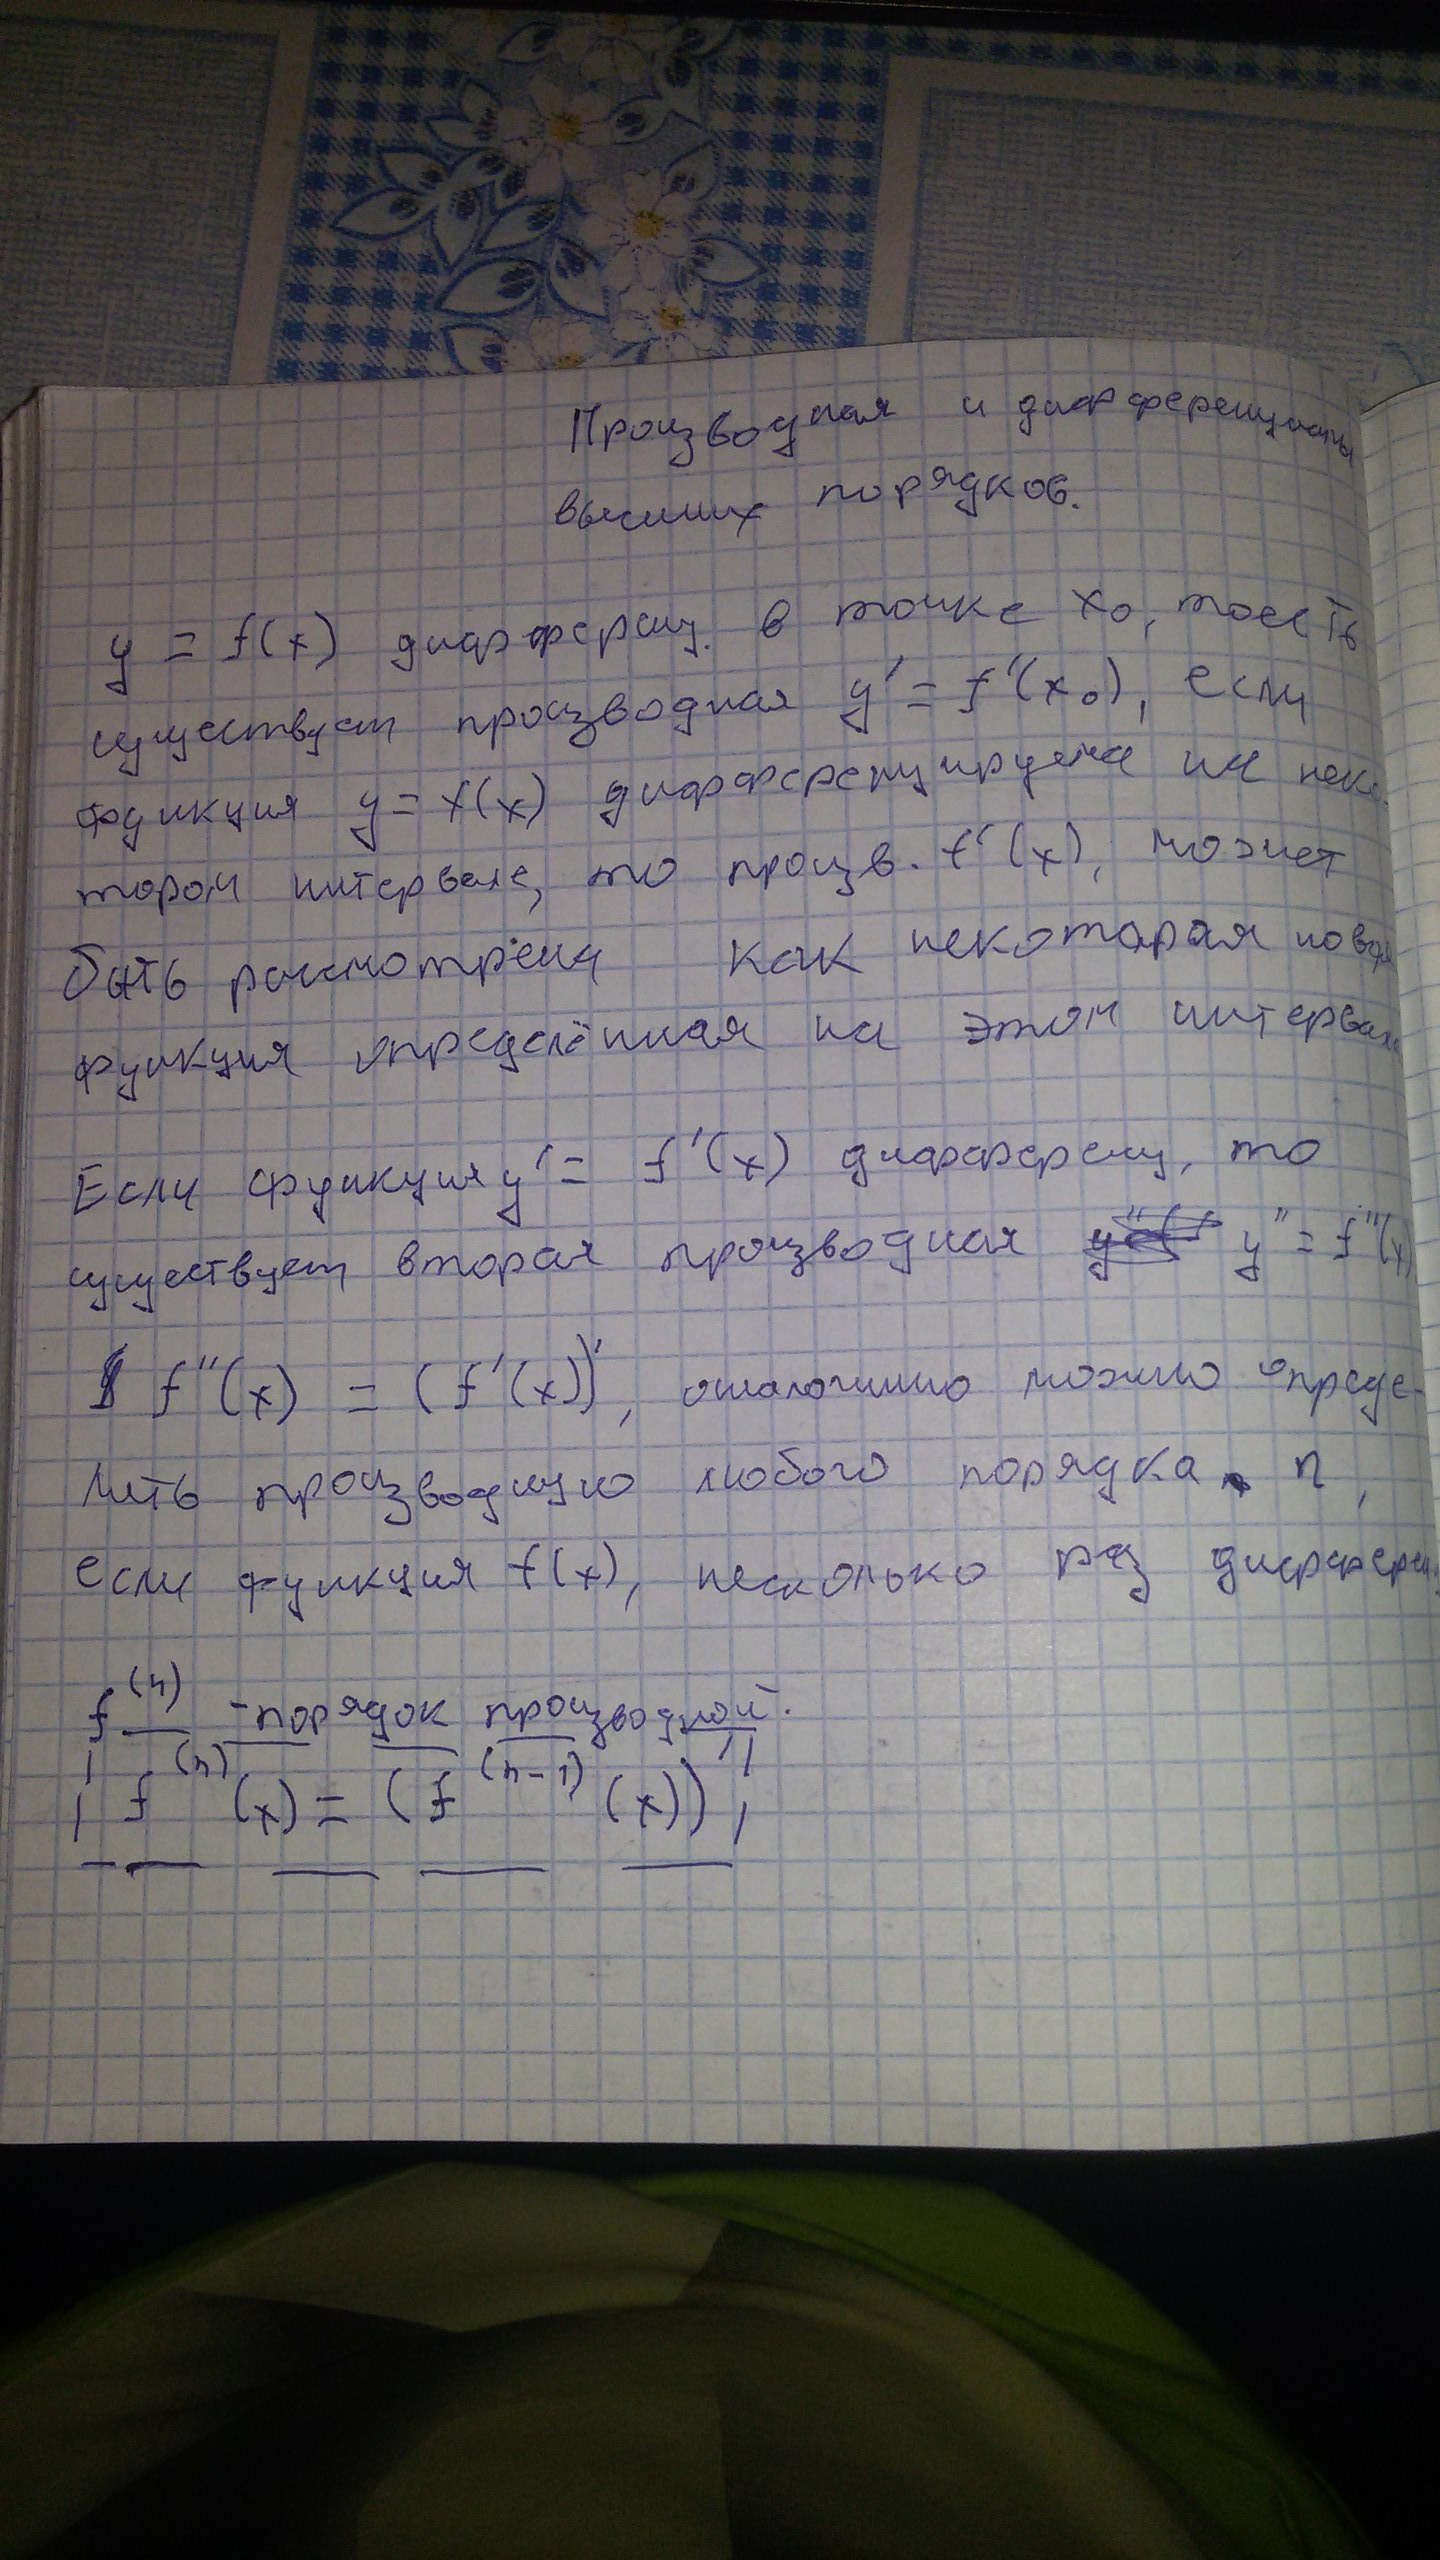 Производная и дифференциалы
высших порядков.
y = f(x) дифференц. в точке x₀, тоесть
существует производная y' = f'(x₀), если
функция y = f(x) дифференцируема на неко-
тором интервале, то произв. f'(x), может
быть рассмотрена как некоторая новая
функция определённая на этом интервале
Если функция y' = f'(x) дифференц, то
существует вторая производная y'' = f''(x)
f''(x) = (f'(x))', аналогично можно опреде-
лить производную любого порядка n,
если функция f(x), несколько раз дифферен
f⁽ⁿ⁾ - порядок производной.
f⁽ⁿ⁾(x) = (f⁽ⁿ⁻¹⁾(x))'